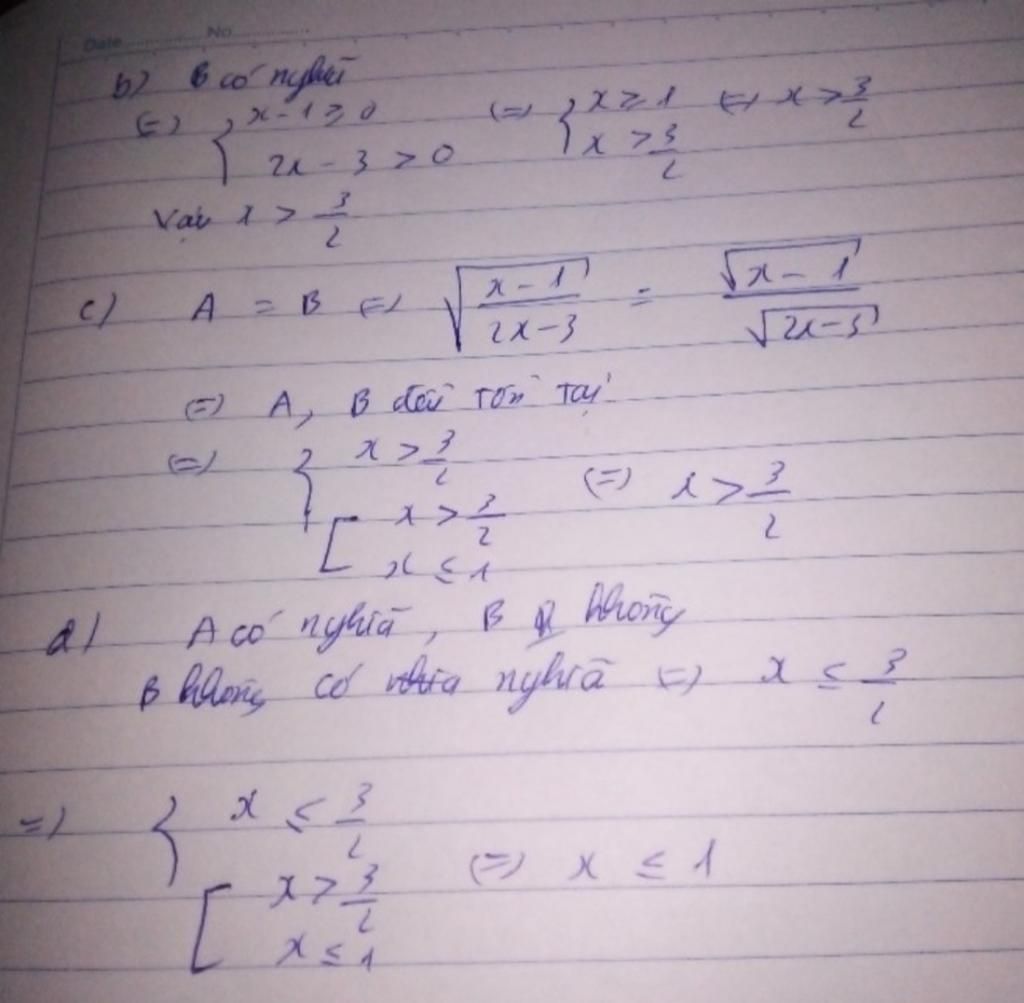 Date No
b) B có nghĩa
(=) { x-1 ≥ 0 (=) { x ≥ 1 (=) x > 3/2
2x - 3 > 0 x > 3/2
Vậy x > 3/2
c) A = B (=) √((x-1)/(2x-3)) = √(x-1)/√(2x-3)
(=) A, B đều tồn tại
(=) { x > 3/2
[ x > 3/2 (=) x > 3/2
x ≤ 1
d) A có nghĩa, B không
B không có nghĩa (=) x ≤ 3/2
=) { x ≤ 3/2
[ x > 3/2 (=) x ≤ 1
x ≤ 1